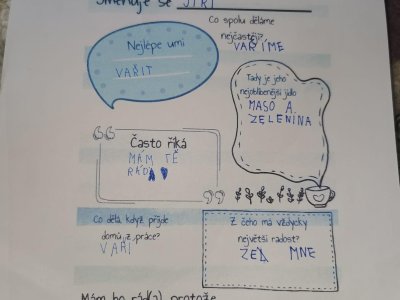 Jmenuje se JIŘÍ
Co spolu děláme
nejčastěji?
VAŘÍME
Nejlépe umí
VAŘIT
Tady je jeho
nejoblíbenější jídlo
MASO A
ZELENINA
Často říká
MÁM TĚ
RÁD
Co dělá, když přijde
domů „z práce?
VAŘÍ
Z čeho má vždycky
největší radost?
ZE MNE
Mám ho rád(a), protože